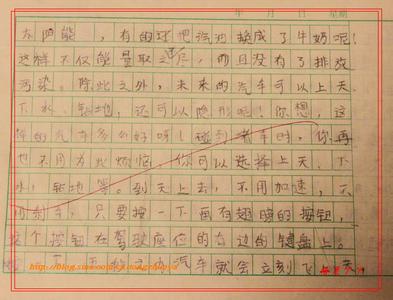 年 月 日 星期
太阳能，有的还把汽油换成了牛奶呢！
这样不仅能量取之不尽，而且没有了排放
污染。除此之外，未来的汽车可以上天、
下水、钻地，还可以隐形呢！你想，这
样的汽车多么好呀！碰到堵车时，你再
也不用为此烦恼。你可以选择上天、下
水、钻地等。到天上去，不用加速，不
用刹车，只要按一下画有翅膀的按钮，
这个按钮在驾驶座位的右边的键盘上。
汽车就会立刻飞